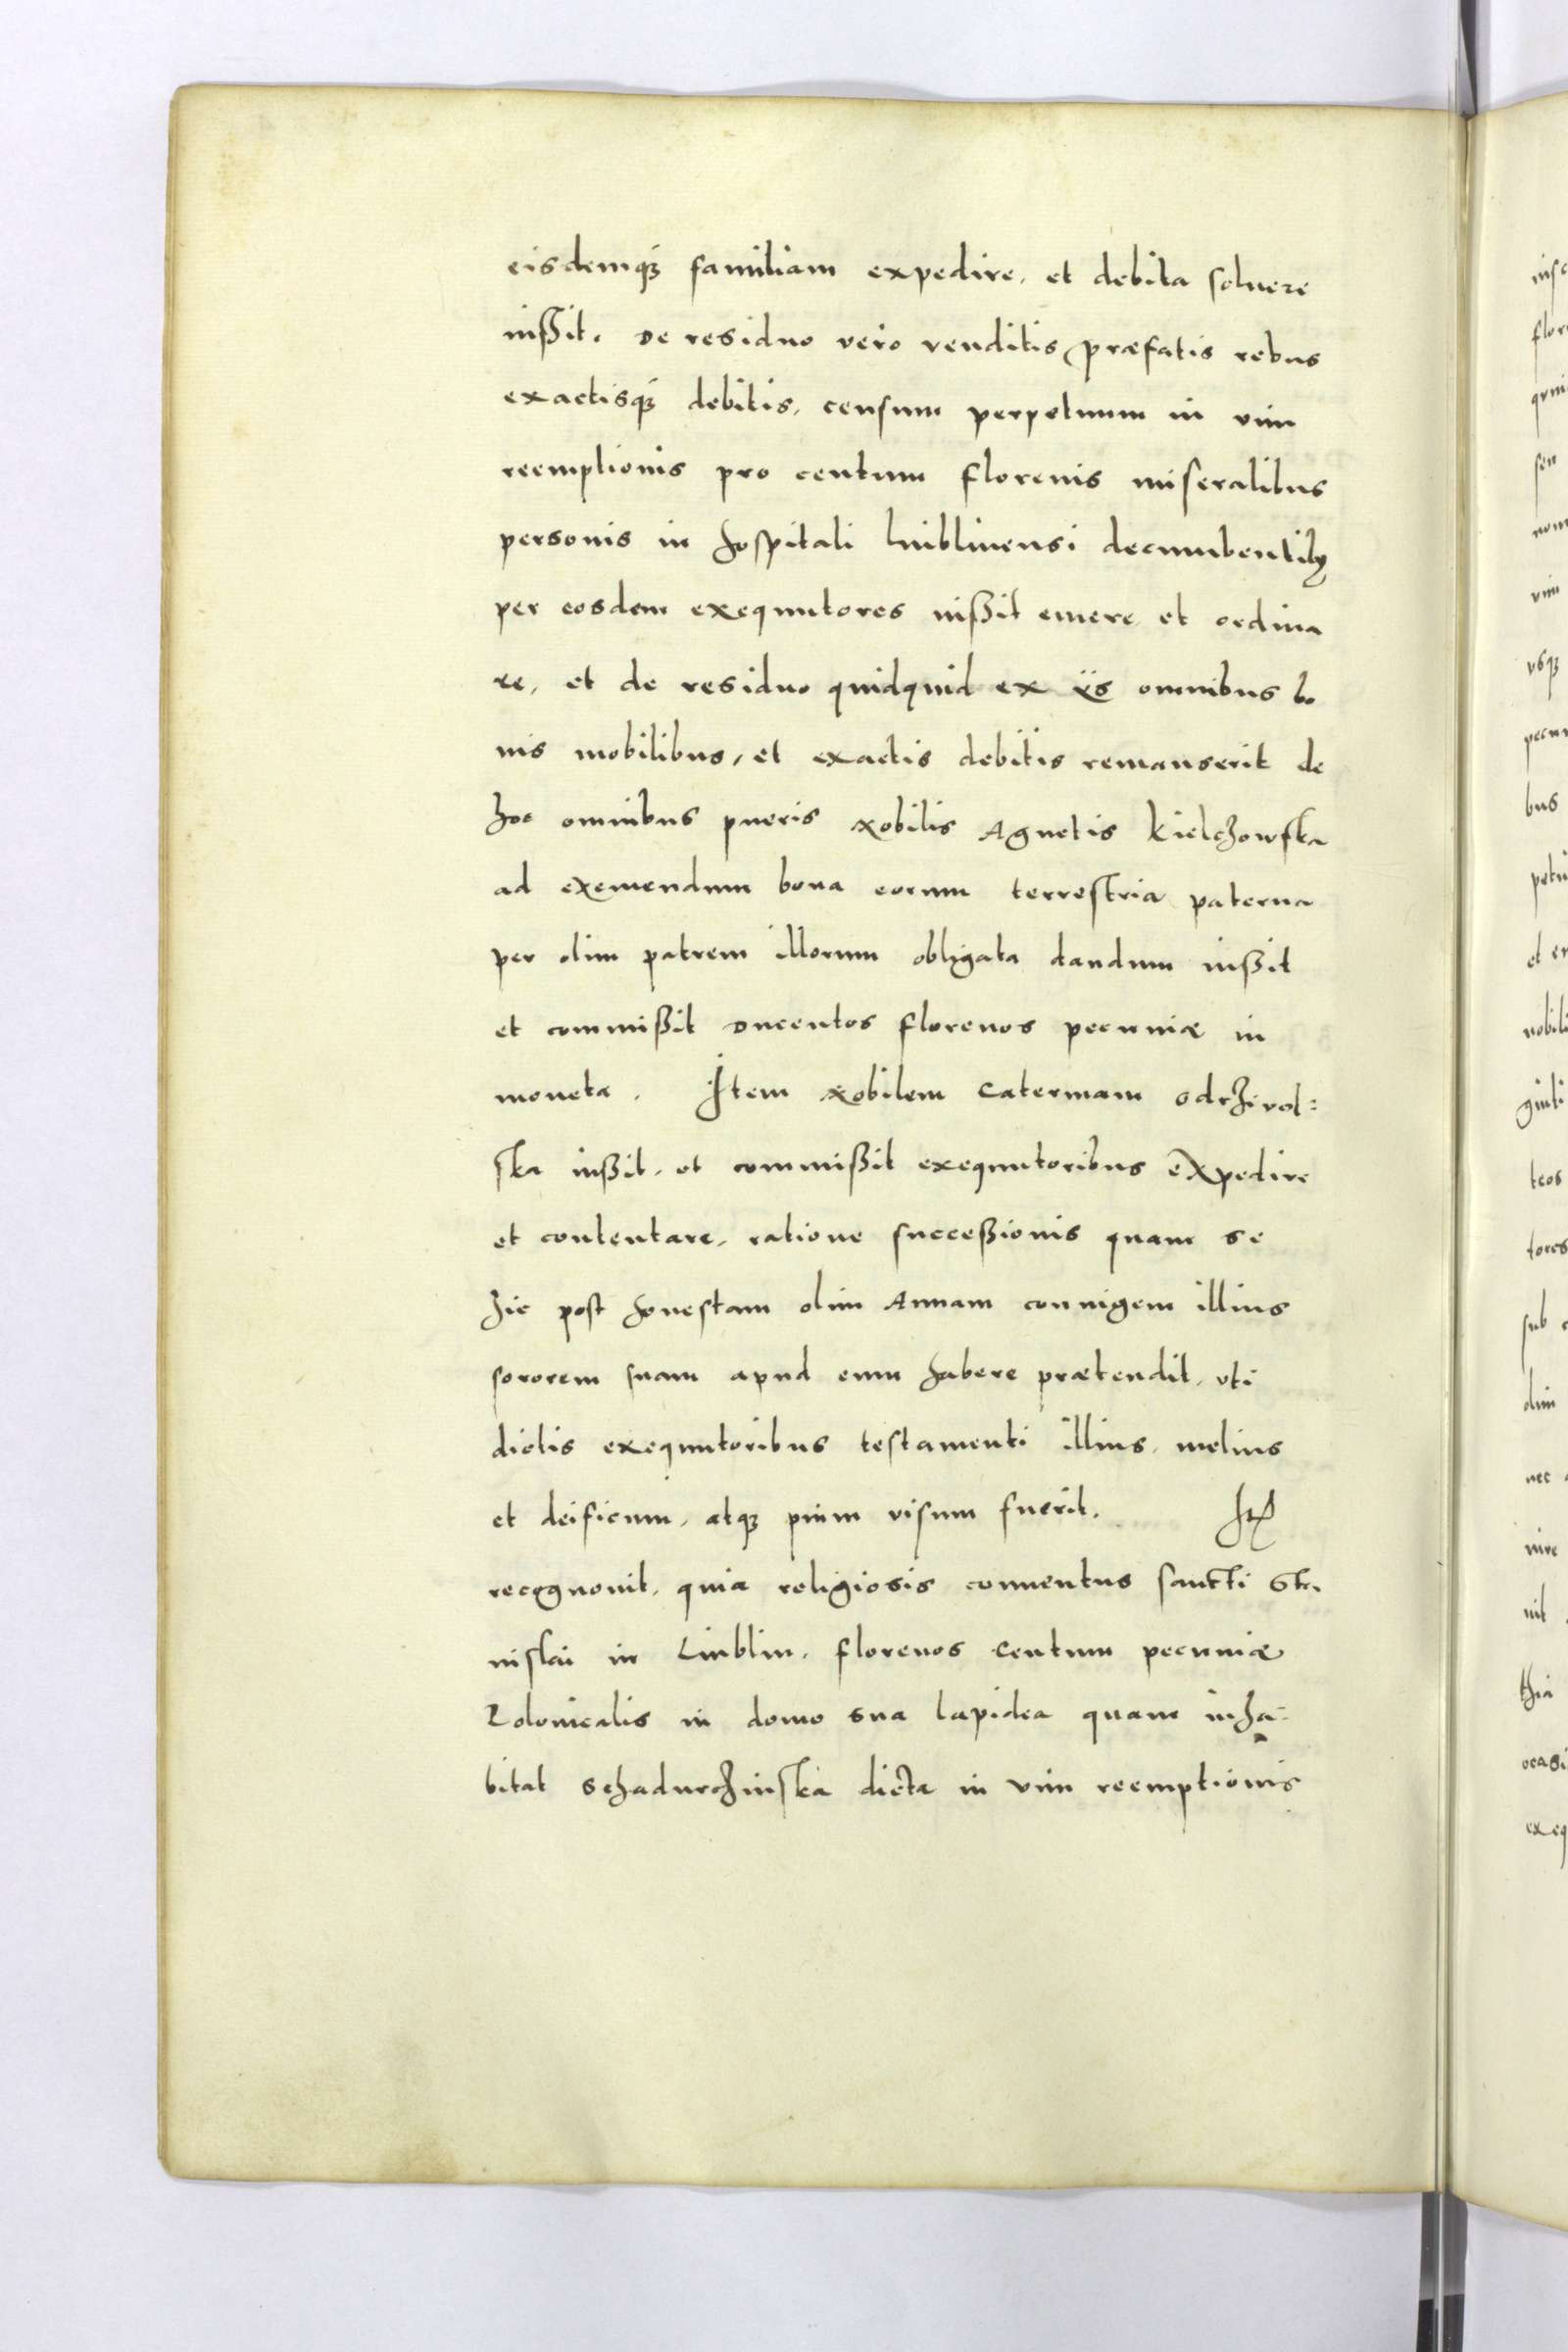 eisdemq3 familiam expedire, et debita soluere
iussit. De residuo vero venditis præfatis rebus
exactisq3 debitis, censum perpetuum in vim
reemptionis pro centum florenis miseralibus
personis in hospitali lublinensi decumbentib9
per eosdem exequutores iussit emere et ordina
re, et de residuo quidquid ex ijs omnibus bo
nis mobilibus, et exactis debitis remanserit de
hoc omnibus pueris Nobilis Agnetis Kielchowska
ad exemendum bona eorum terrestria paterna
per olim patrem illorum obligata dandum iussit
et commissit Ducentos florenos pecuniæ in
moneta. Item Nobilem Caterinam Odrzivol:
ska iussit, et commissit exequutoribus expedire
et contentare, ratione successionis quam se
hic post honestam olim Annam coniugem illius
sororem suam apud eum habere prætendit, uti
dictis exequutoribus testamenti illius, melius
et deificum, atq3 pium visum fuerit. Itē
recognouit, quia religiosis conuentus sancti Sta
nislai in Liublin, florenos Centum pecuniæ
Polonicalis in domo sua lapidea quam inha-
bitat Schadurchinska dicta in vim reemptionis